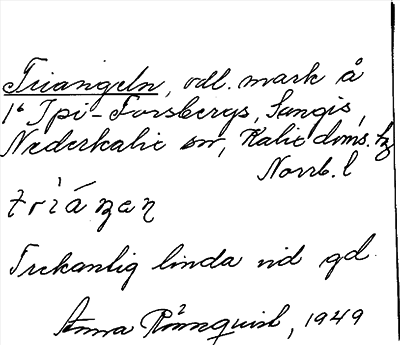 Triangeln, odl. mark å
1⁶ Ipi-Forsbergs, Sangis,
Nederkalix sn, Kalix doms. hg
Norrb. l
trìáŋən
Trekantig linda vid gd.
Anna Rönnquist, 1949